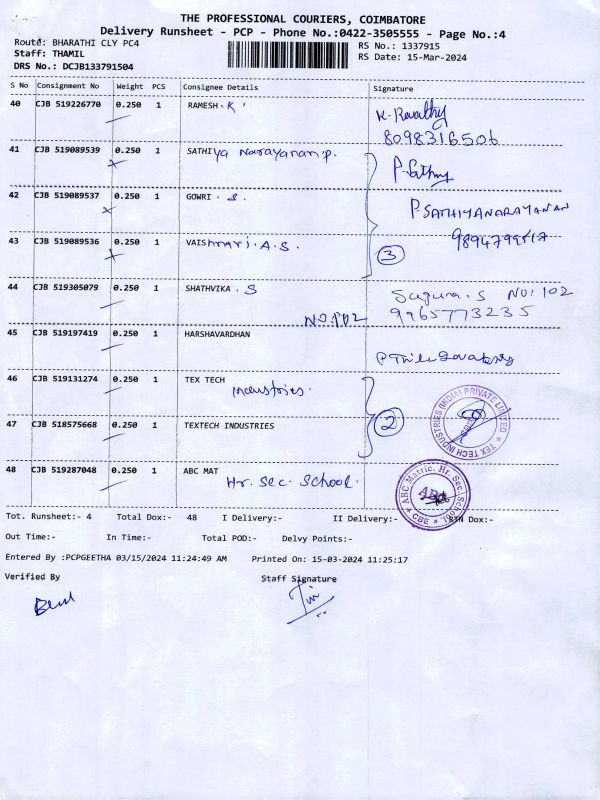 THE PROFESSIONAL COURIERS, COIMBATORE
Delivery Runsheet - PCP - Phone No.:0422-3505555 - Page No.:4
Route: BHARATHI CLY PC4
Staff: THAMIL
DRS No.: DCJB133791504
RS No.: 1337915
RS Date: 15-Mar-2024
S No Consignment No Weight PCS Consignee Details Signature
40 CJB 519226770 0.250 1 RAMESH. K
K. Revathy
8098316506
41 CJB 519089539 0.250 1 SATHIya Narayanan P.
P. Sathiya
42 CJB 519089537 0.250 1 GOWRI . S.
P. SATHIYANARAYANAN
43 CJB 519089536 0.250 1 VAIShnavi. A. S.
3
44 CJB 519305079 0.250 1 SHATHVIKA . S
Suguna. S NO: 102
9965773235
NO. 102
45 CJB 519197419 0.250 1 HARSHAVARDHAN
46 CJB 519131274 0.250 1 TEX TECH Industries.
2
TEX TECH INDUSTRIES (INDIA) PRIVATE LIMITED
CBE
47 CJB 518575668 0.250 1 TEXTECH INDUSTRIES
48 CJB 519287048 0.250 1 ABC MAT Hr. Sec. School.
ABC Matric. Hr. Sec. School
CBE
Tot. Runsheet:- 4 Total Dox:- 48 I Delivery:- II Delivery:- RTN Dox:-
Out Time:- In Time:- Total POD:- Delvy Points:-
Entered By :PCPGEETHA 03/15/2024 11:24:49 AM Printed On: 15-03-2024 11:25:17
Verified By Staff Signature